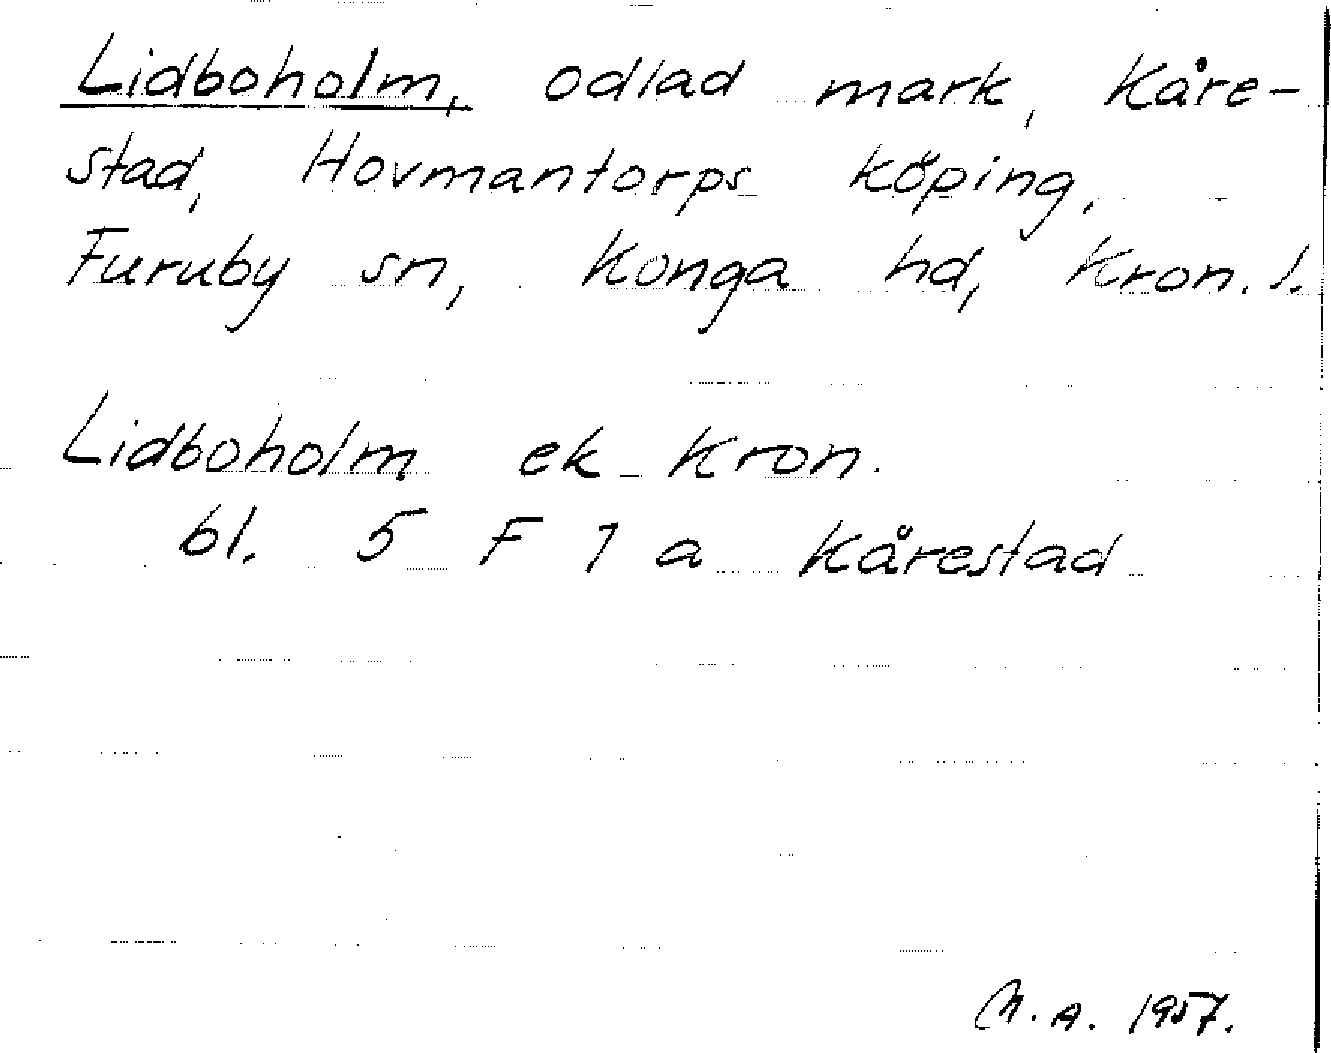 Lidboholm, odlad mark, Kåre-
stad, Hovmantorps köping,
Furuby sn, Konga hd, Kron. l.
Lidboholm ek Kron.
bl. 5 F 1 a Kårestad
M. A. 1957.